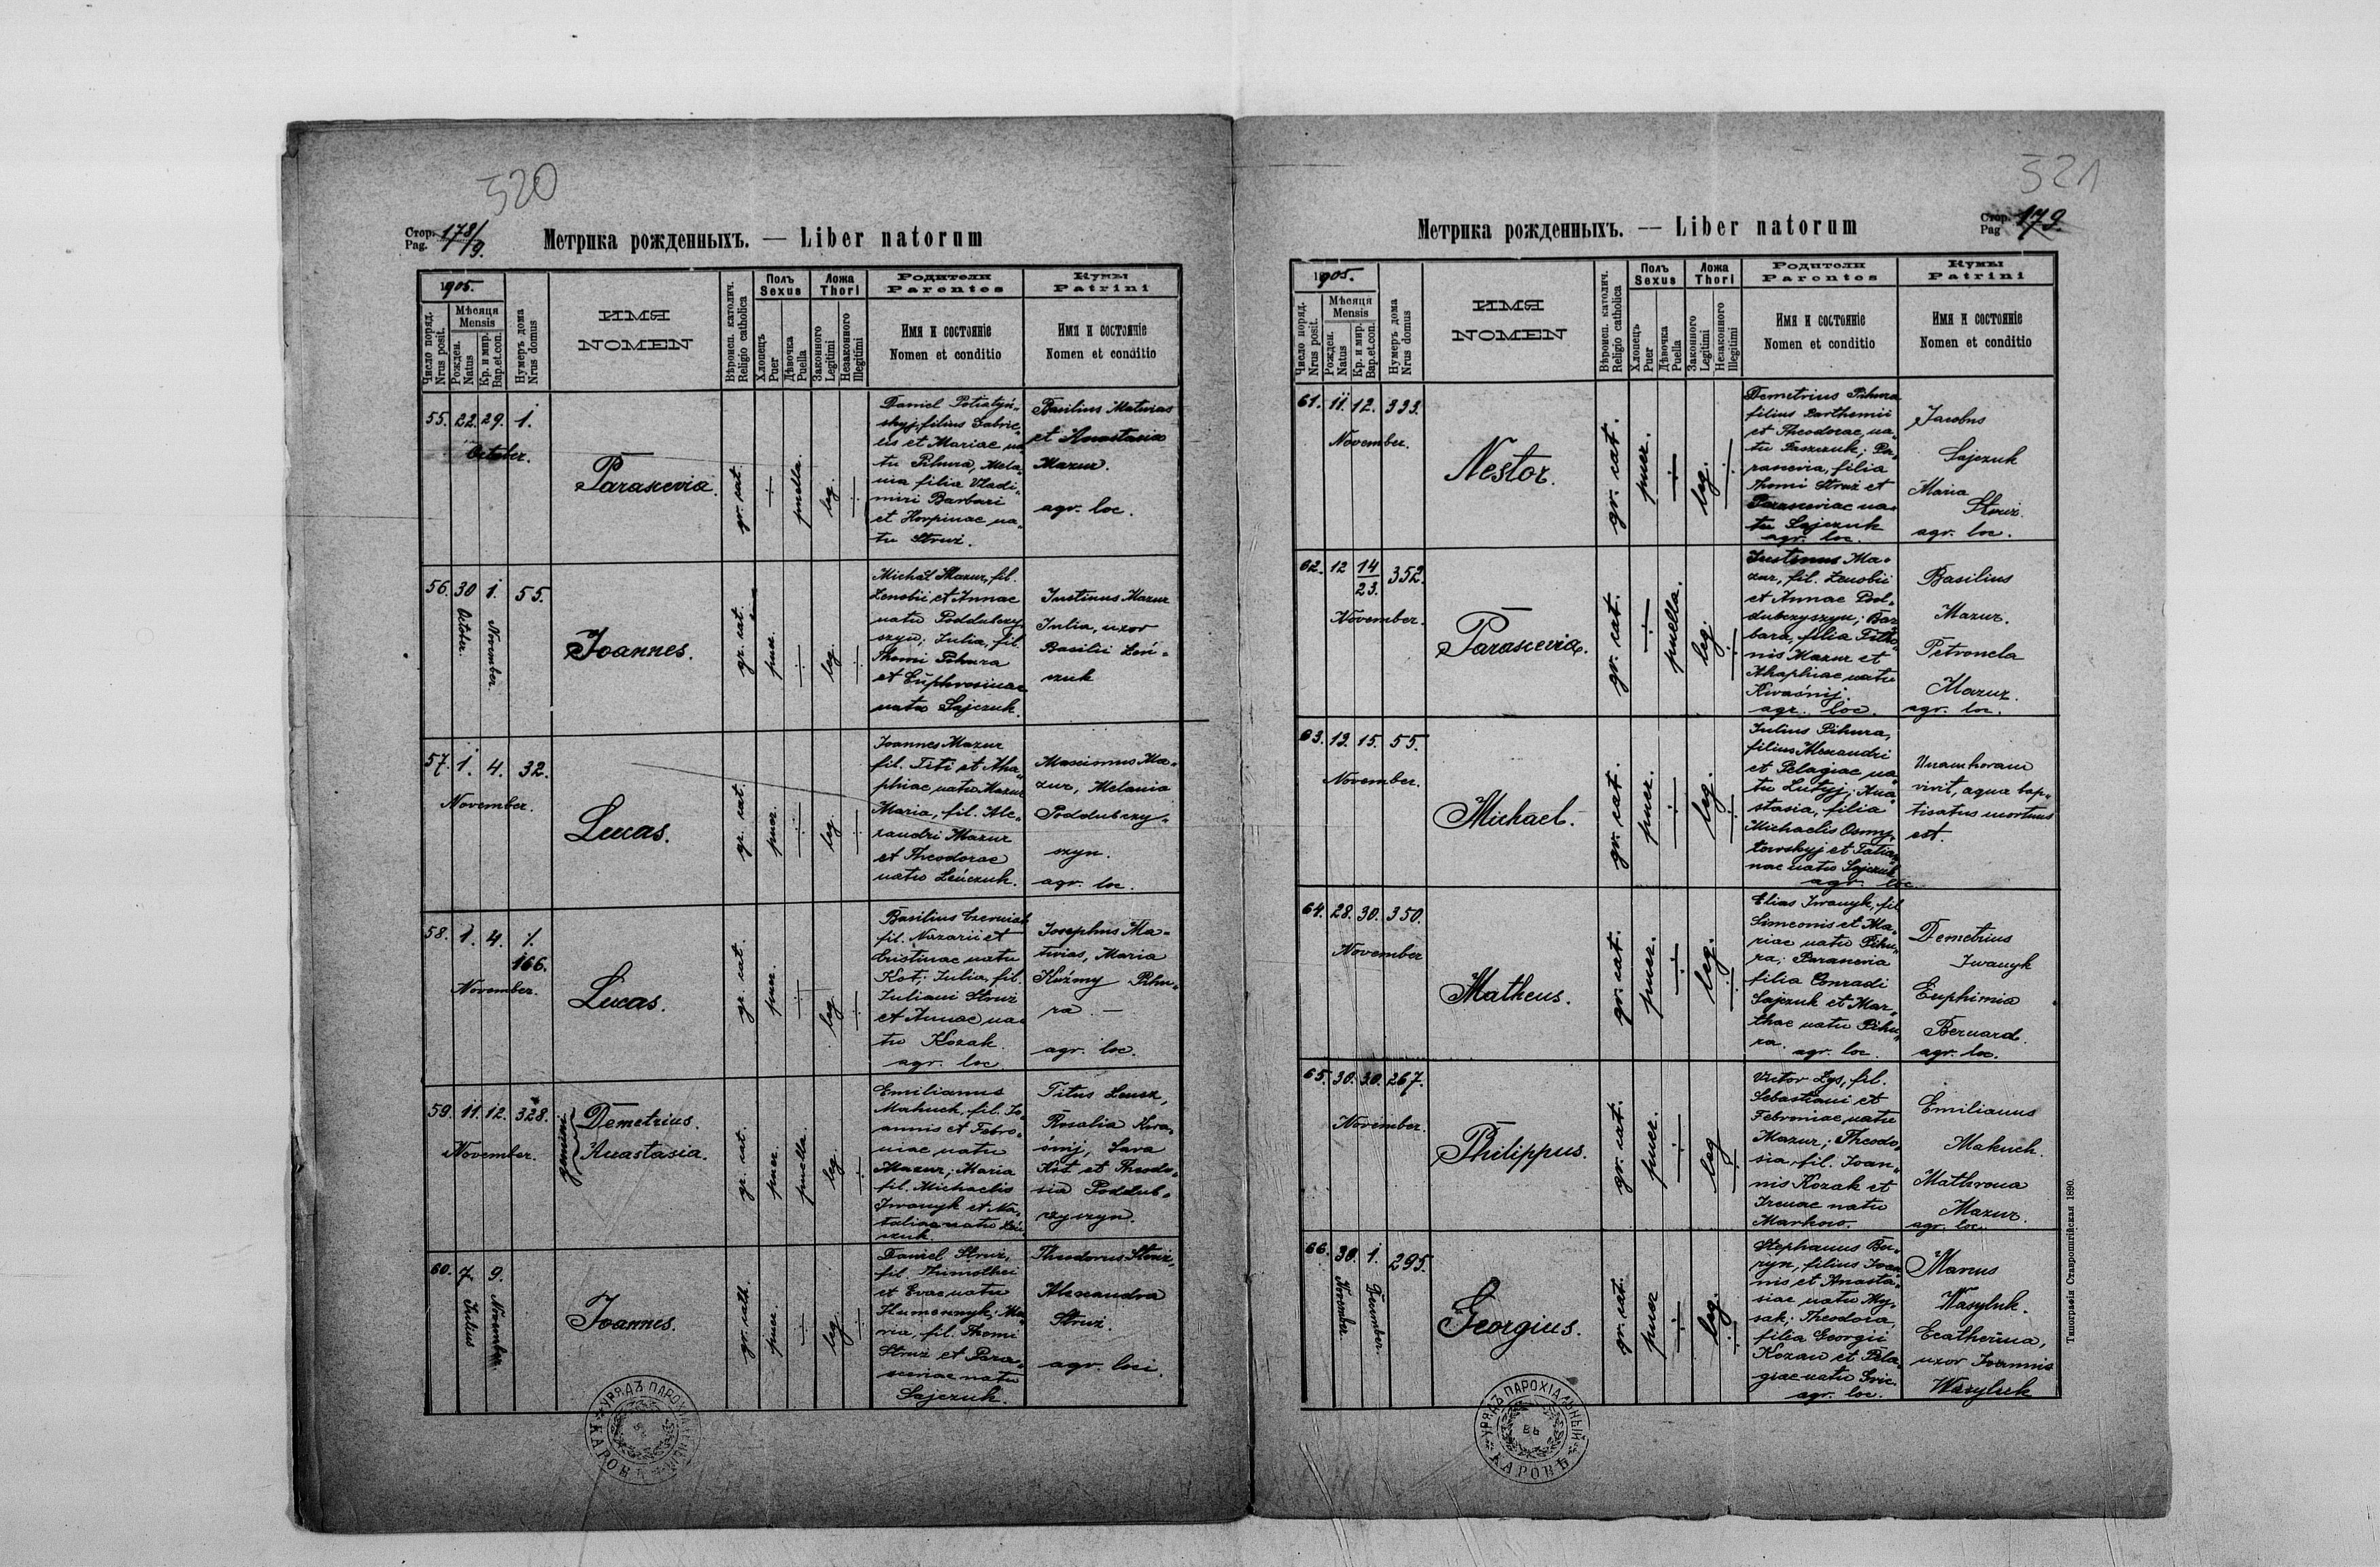 520
Стор. 178/9.
Pag.
Метрика рожденныхъ. — Liber natorum
1905.
Число поряд.
Nrus posit.
Мѣсяця
Mensis
Рожден.
Natus
Кр. и мир.
Bap.et.con.
Нумеръ дома
Nrus domus
ИМЯ
NOMEN
Вѣроисп. католич.
Religio catholica
Полъ
Sexus
Хлопецъ
Puer
Дѣвочка
Puella
Ложа
Thori
Законного
Legitimi
Незаконного
Illegitimi
Родители
Parentes
Имя и состояніе
Nomen et conditio
Кумы
Patrini
Имя и состояніе
Nomen et conditio
55. 22. 29. 1.
October.
Parascevia.
gr. cat.
puella.
leg.
Daniel
skyj, filius Gabrie-
lis et Mariae na-
tu Pihura, Mela-
nia filia Vladi-
miri Barbari
et Horpinae na-
tu Struż.
Basilius Matwias
et Anastasia
Mazur.
agr. loc.
56. 30 1. 55.
October.
November.
Joannes.
gr. cat.
puer.
leg.
Michaël Mazur, fil.
Zenobii et Annae
natu Poddubczy-
szyn; Julia, fil.
Thomi Pihura
et Euphrosinae
natu Sajczuk.
Justinus Mazur
Julia, uxor
Basilii Leń-
czuk
57. 1. 4. 32.
November.
Lucas.
gr. cat.
puer.
leg.
Joannes Mazur
fil. Titi et Aha-
phiae natu Mazur
Maria, fil. Ale-
xandri Mazur
et Theodorae
natu Leńczuk.
Maximus Ma-
zur, Melania
Poddubczy-
szyn.
agr. loc.
58. 1. 4. 1.
166.
November.
Lucas.
gr. cat.
puer.
leg.
Basilius
fil. Nazarii et
Cristinae natu
Kot; Julia, fil.
Juliani Struż
et Annae na-
tu Kozak.
agr. loc
Josephus Ma-
twias, Maria
Kuźmy Pihu-
ra —
agr. loc.
59. 11. 12. 328.
November.
gemini
Demetrius.
Anastasia.
gr. cat.
puer.
puella.
leg.
Emilianus
Makuch, fil. Jo-
annis et Febro-
niae natu
Mazur; Maria
fil. Michaelis
Iwanyk et Na-
taliae natu Leń-
czuk.
Titus
Rosalia Kwa-
śnij, Sava
Kut et Theodo-
sia Poddub-
czyszyn.
60. 7 9.
Julius
November.
Joannes.
gr. cath.
puer.
leg.
Daniel Struż,
fil. Timothei
et Evae natu
Humennyk; Ma-
ria, fil. Thomi
Struż et Para-
sceviae natu
Sajczuk.
Theodorus Struż,
Alexandra
Struż.
agr. loci.
УРЯДЪ ПАРОХІАЛЬНЫЙ
ВЪ
КАРОВѢ
521
Стор. 179.
Pag
Метрика рожденныхъ. — Liber natorum
1905.
Число поряд.
Nrus posit.
Мѣсяця
Mensis
Рожден.
Natus
Кр. и мир.
Bap.et.con.
Нумеръ дома
Nrus domus
ИМЯ
NOMEN
Вѣроисп. католич.
Religio catholica
Полъ
Sexus
Хлопецъ
Puer
Дѣвочка
Puella
Ложа
Thori
Законного
Legitimi
Незаконного
Illegitimi
Родители
Parentes
Имя и состояніе
Nomen et conditio
Кумы
Patrini
Имя и состояніе
Nomen et conditio
61. 11. 12. 333.
November.
Nestor.
gr. cat.
puer.
leg.
Demetrius Pihura
filius Barthemii
et Theodorae na-
tu Paszczuk; Pa-
rascevia, filia
Thomi Struż et
Parasceviae na-
tu Sajczuk
agr. loc.
Jacobus
Sajczuk
Maria
Struż.
agr. loc.
62. 12 14 352.
23.
November.
Parascevia.
gr. cat.
puella.
leg.
Justinus Ma-
zur, fil. Zenobii
et Annae Pod-
dubczyszyn; Bar-
bara, filia
nis Mazur et
Ahaphiae natu
Kwaśnij.
agr. loc.
Basilius
Mazur.
Petronela
Mazur.
agr. loc.
63. 12. 15. 55.
November.
Michael.
gr. cat.
puer.
leg.
Julius Pihura,
filius Alexandri
et Pelagiae na-
tu Lutyj; Ana-
stasia, filia
Michaelis Osmy-
towskyj et Tatia-
nae natu Sajczuk
agr. loc.
Unam horam
vivit, aqua bap-
tisatus mortuus
est.
64. 28. 30. 350.
November
Matheus.
gr. cat.
puer.
leg.
Elias Iwanyk, fil
Simeonis et Ma-
riae natu Pihu-
ra; Parascevia
filia Conradi
Sajczuk et Mar-
thae natu Pihu-
ra. agr. loc.
Demetrius
Iwanyk
Euphimia
Bernard.
agr. loc.
65. 30. 30. 267.
November.
Philippus.
gr. cat.
puer.
leg
Victor Lys, fil.
Sebastiani et
Febroniae natu
Mazur; Theodo-
sia, fil. Joan-
nis Kozak et
Irenae natu
Markow.
Emilianus
Makuch.
Mathrona
Mazur.
agr. loc.
66. 30. 1. 295.
November.
December.
Georgius.
gr. cat.
puer
leg.
Stephanus Bu-
ryn, filius Joan-
nis et Anasta-
siae natu My-
sak; Theodora,
filia Georgii
Kozan et Pela-
giae natu
agr. loc.
Marcus
Wasyluk.
Ecatherina,
uxor Joannis
Wasyluk
УРЯДЪ ПАРОХІАЛЬНЫЙ
ВЪ
КАРОВѢ
Типографія Ставропигійская 1890.